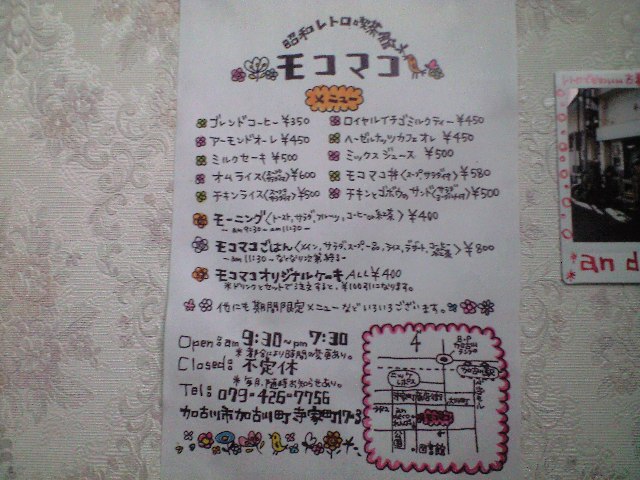 昭和レトロな喫茶
モコマコ
メニュー
ブレンドコーヒー ¥350
ロイヤルイチゴミルクティー ¥450
アーモンドオーレ ¥450
ヘーゼルナッツカフェオレ ¥450
ミルクセーキ ¥500
ミックスジュース ¥500
オムライス(スープ サラダ付) ¥600
モコマコ丼(スープ サラダ付) ¥580
チキンライス(スープ サラダ付) ¥500
チキンとゴボウのサンド ¥500
モーニング〈トースト、サラダ、フルーツ、コーヒーor紅茶〉 ¥400
~am 9:30~am 11:30~
モコマコごはん〈メイン、サラダ、スープ、一品、ライス、デザート、コーヒーor紅茶〉 ¥800
~am 11:30~なくなり次第終了~
モコマコオリジナルケーキ ALL ¥400
※ドリンクとセットで注文すると、¥100引になります。
他にも期間限定メニューなどいろいろございます。
Open: am 9:30~pm 7:30
※都合により時間の変更あり。
Closed: 不定休
※毎月、随時お知らせあり。
Tel: 079-426-7756
加古川市加古川町寺家町17-3
4
B-P
ニッケ
図書館
and